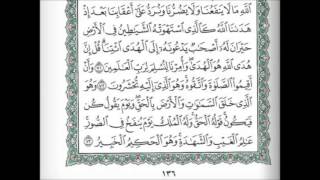 اللَّهِ مَا لَا يَنفَعُنَا وَلَا يَضُرُّنَا وَنُرَدُّ عَلَىٰ أَعْقَابِنَا بَعْدَ إِذْ
هَدَىٰنَا اللَّهُ كَالَّذِي اسْتَهْوَتْهُ الشَّيَٰطِينُ فِي الْأَرْضِ
حَيْرَانَ لَهُ أَصْحَٰبٌ يَدْعُونَهُ إِلَى الْهُدَى ائْتِنَا قُلْ إِنَّ
هُدَى اللَّهِ هُوَ الْهُدَىٰ وَأُمِرْنَا لِنُسْلِمَ لِرَبِّ الْعَٰلَمِينَ ٧١ وَأَنْ
أَقِيمُوا الصَّلَوٰةَ وَاتَّقُوهُ وَهُوَ الَّذِي إِلَيْهِ تُحْشَرُونَ ٧٢ وَهُوَ
الَّذِي خَلَقَ السَّمَٰوَٰتِ وَالْأَرْضَ بِالْحَقِّ وَيَوْمَ يَقُولُ كُن
فَيَكُونُ قَوْلُهُ الْحَقُّ وَلَهُ الْمُلْكُ يَوْمَ يُنفَخُ فِي الصُّورِ
عَٰلِمُ الْغَيْبِ وَالشَّهَٰدَةِ وَهُوَ الْحَكِيمُ الْخَبِيرُ ٧٣
١٣٦